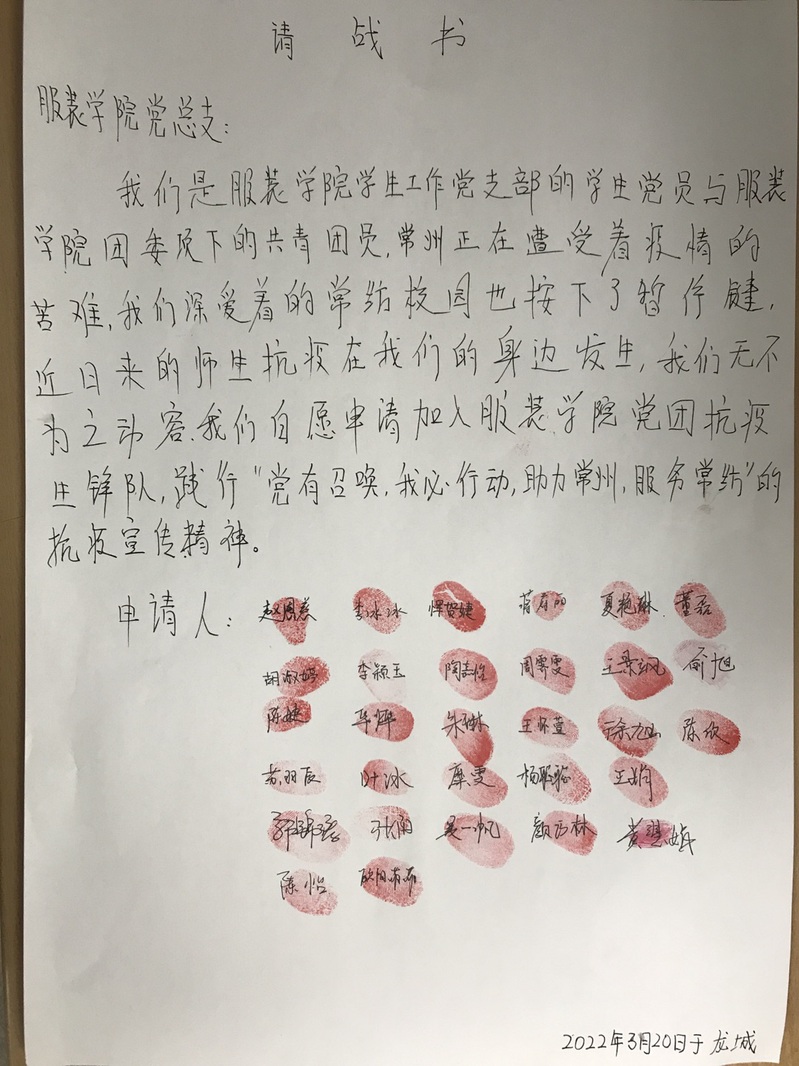 请战书
服装学院党总支：
我们是服装学院学生工作党支部的学生党员与服装
学院团委况下的共青团员，常州正在遭受着疫情的
苦难，我们深爱着的常纺校园也按下了暂停键，
近日来的师生抗疫在我们的身边发生，我们无不
为之动容，我们自愿申请加入服装学院党团抗疫
生锋队，践行“党有召唤，我必行动，助力常州，服务常纺”的
抗疫宣传精神。
申请人：赵周蕊 李冰冰 恽贺婕 夏艳琳 董磊
胡淑婷 李颖玉 陶志怡 周霁雯 俞旭
陈婕 毕烨 朱琳 王怀萱 徐旭 陈欣
苏羽辰 叶冰 糜雯 王娟
张雨 吴一帆 颜丙林 黄慧娥
陈怡
2022年3月20日于龙城